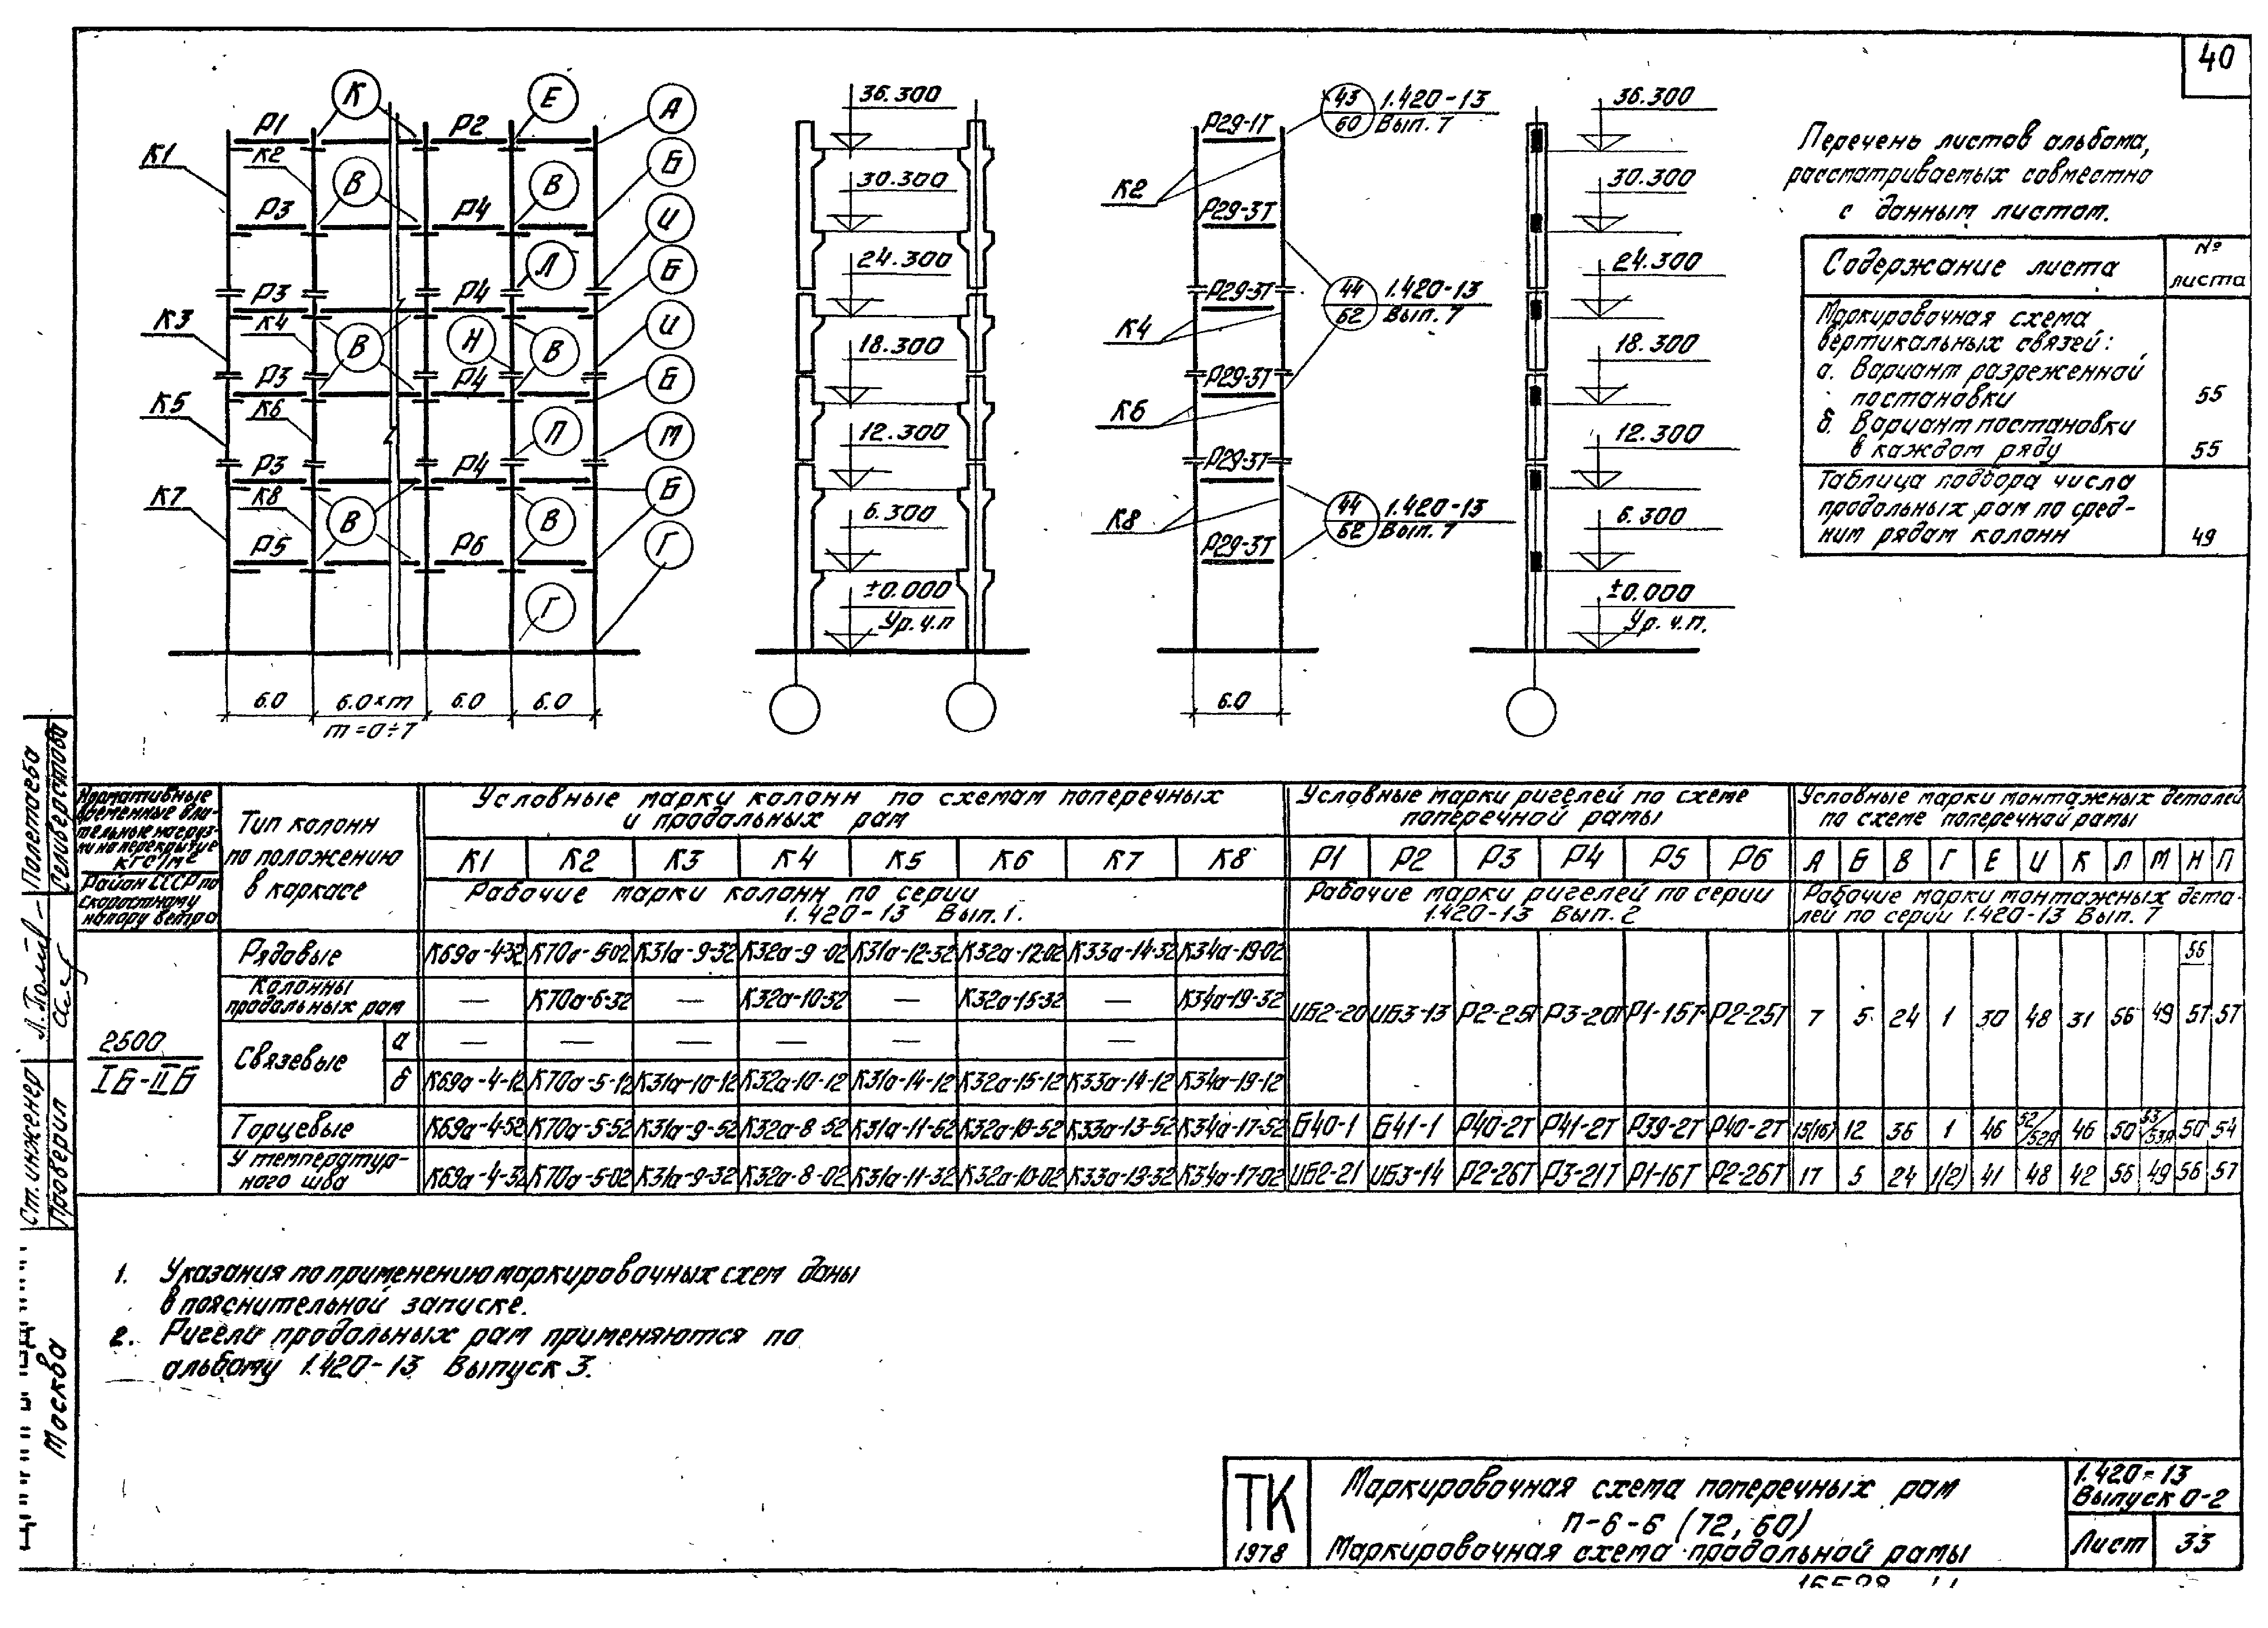 40
К
Е
А
Р1
Р2
К1
К2
В
В
Б
Р3
Р4
И
Л
Б
Р3
Р4
К3
К4
В
Н
В
И
Р3
Р4
Б
К5
К6
П
М
Р3
Р4
Б
К7
К8
В
В
Р5
Р6
Г
Г
6.0
6.0×m
6.0
6.0
m=0÷7
36.300
30.300
24.300
18.300
12.300
6.300
±0.000
Ур.ч.п
Р29-1Т
43
60
1.420-13
Вып. 7
К2
Р29-3Т
Р29-3Т
44
62
1.420-13
Вып. 7
К4
Р29-3Т
К6
Р29-3Т
44
62
1.420-13
Вып. 7
К8
Р29-3Т
6.0
36.300
30.300
24.300
18.300
12.300
6.300
±0.000
Ур.ч.п.
Перечень листов альбома,
рассматриваемых совместно
с данным листом.
Содержание листа
№
листа
Маркировочная схема
вертикальных связей:
а. Вариант разреженной
постановки
55
б. Вариант постановки
в каждом ряду
55
Таблица подбора числа
продольных рам по сред-
ним рядам колонн
49
Нормативные
временные дли-
тельные нагруз-
ки на перекрытие
кгс/м²
Район СССР по
скоростному
напору ветра
Тип колонн
по положению
в каркасе
Условные марки колонн по схемам поперечных
и продольных рам
Условные марки ригелей по схеме
поперечной рамы
Условные марки монтажных деталей
по схеме поперечной рамы
К1 К2 К3 К4 К5 К6 К7 К8 Р1 Р2 Р3 Р4 Р5 Р6 А Б В Г Е И К Л М Н П
Рабочие марки колонн по серии
1.420-13 Вып.1.
Рабочие марки ригелей по серии
1.420-13 Вып.2
Рабочие марки монтажных дета-
лей по серии 1.420-13 Вып. 7
2500
IБ-IIБ
Рядовые К69а-4-32 К70а-5-02 К31а-9-32 К32а-9-02 К31а-12-32 К32а-12-02 К33а-14-32 К34а-19-02
Колонны
продольных рам — К70а-6-32 — К32а-10-32 — К32а-15-32 — К34а-19-32
ИБ2-20 ИБ3-13 Р2-25Т Р3-20Т Р1-15Т Р2-25Т 7 5 24 1 30 48 31 56 49 56 57 57
Связевые
а — — — — — —
б К69а-4-12 К70а-5-12 К31а-10-12 К32а-10-12 К31а-14-12 К32а-15-12 К33а-14-12 К34а-19-12
Торцевые К69а-4-52 К70а-5-52 К31а-9-52 К32а-8-52 К31а-11-52 К32а-10-52 К33а-13-52 К34а-17-52 Б40-1 Б41-1 Р40-2Т Р41-2Т Р39-2Т Р40-2Т 15(16) 12 36 1 46 52/52А 46 50 53/53А 50 54
У температур-
ного шва К69а-4-32 К70а-5-02 К31а-9-32 К32а-8-02 К31а-11-32 К32а-10-02 К33а-13-32 К34а-17-02 ИБ2-21 ИБ3-14 Р2-26Т Р3-21Т Р1-16Т Р2-26Т 17 5 24 1(2) 41 48 42 56 49 56 57
1. Указания по применению маркировочных схем даны
в пояснительной записке.
2. Ригели продольных рам применяются по
альбому 1.420-13 Выпуск 3.
Ст. инженер
Полетаева
Проверил
Селиверстова
Москва
ТК
1978
Маркировочная схема поперечных рам
П-6-6 (72, 60)
Маркировочная схема продольной рамы
1.420-13
Выпуск 0-2
Лист
33